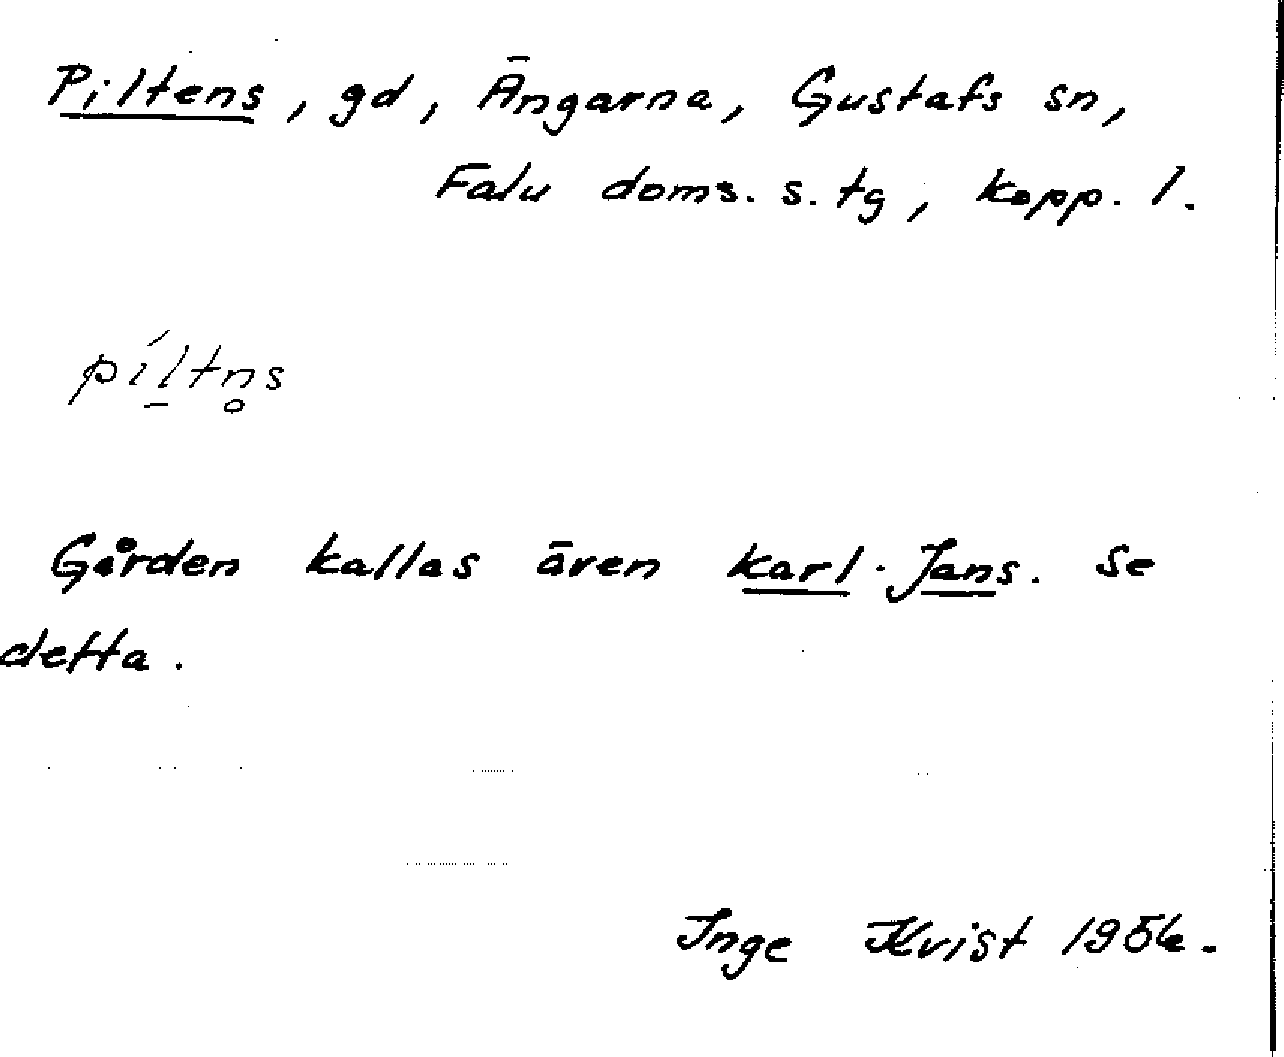 Piltens, gd, Ängarna, Gustafs sn,
Falu doms. s. tg, Kopp. l.
píl̲tn̥s
Gården kallas även Karl-Jans. Se
detta.
Inge Kvist 1956.